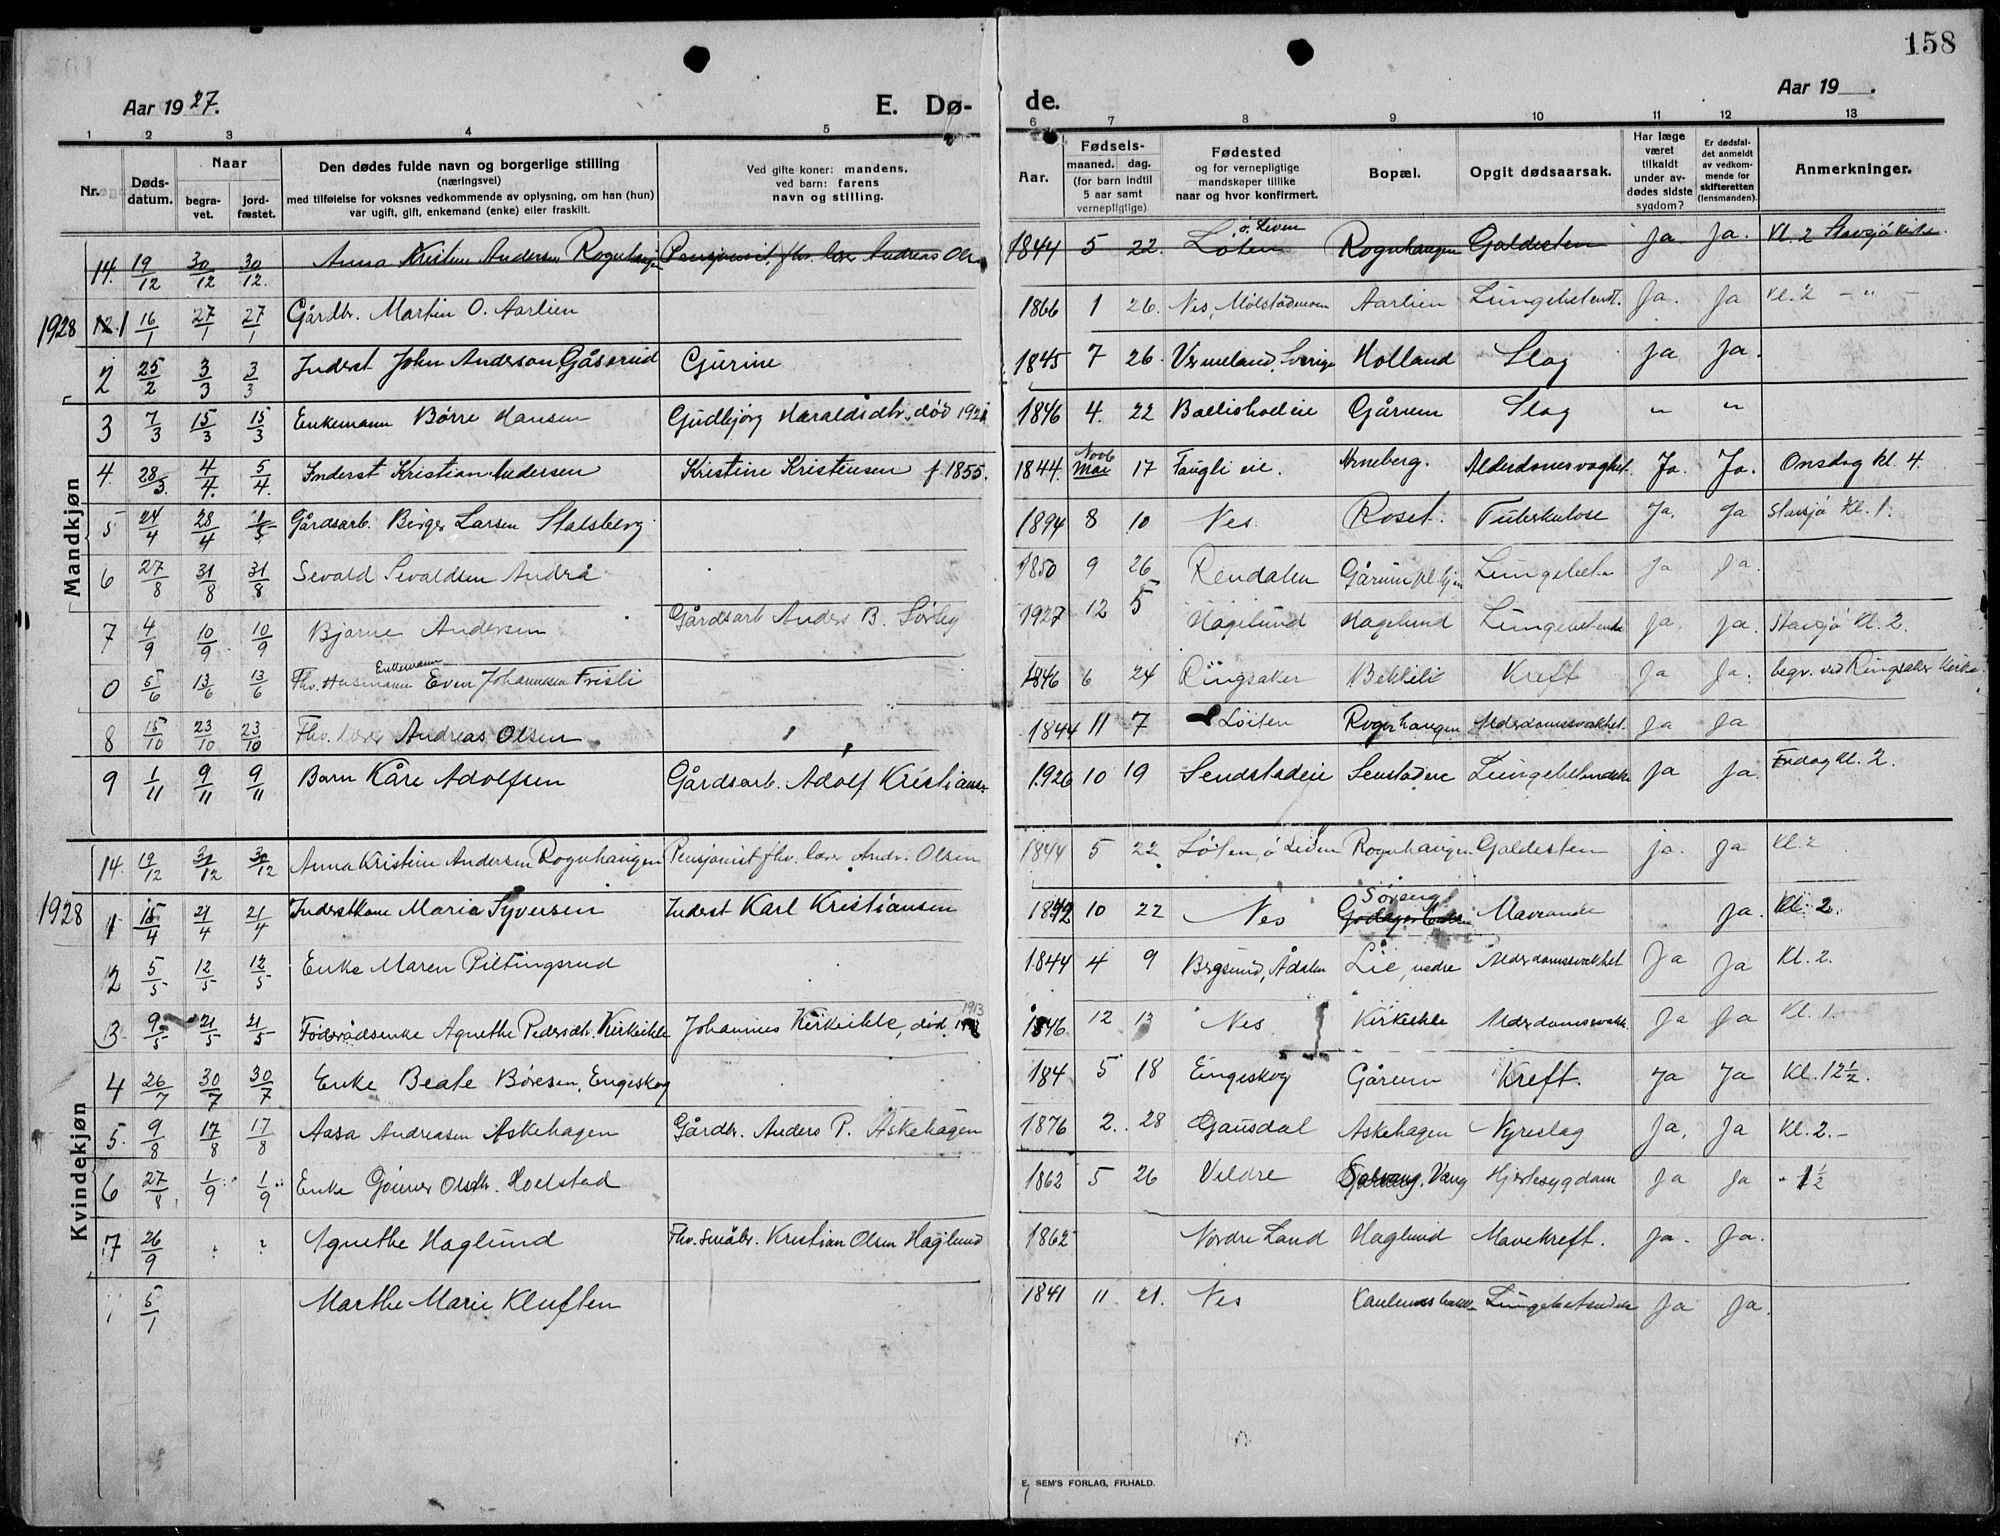 158
Aar 1927. E. Dø- de. Aar 19 .
1 2 3 4 5 6 7 8 9 10 11 12 13
Nr. Døds-datum. Naar begra-vet. jord-fæstet. Den dødes fulde navn og borgerlige stilling (næringsvei) med tilføielse for voksnes vedkommende av oplysning, om han (hun) var ugift, gift, enkemand (enke) eller fraskilt. Ved gifte koner: mandens, ved barn: farens navn og stilling. Aar. Fødsels-maaned. dag. (for barn indtil 5 aar samt vernepligtige) Fødested og for vernepligtige mandskaper tillike naar og hvor konfirmert. Bopæl. Opgit dødsaarsak. Har læge været tilkaldt under av-dødes sidste sygdom? Er dødsfal-det anmeldt av vedkom-mende for skifteretten (lensmanden). Anmerkninger.
Mandkjøn
14. 19/12 30/12 30/12. Anna Kristine Andersen Rognhaugen Pensjonist, fhv. lærer Andreas Olsen 1844 5 22. Løten ø. Liven Rognhaugen Galdesten Ja Ja. Kl. 2 Stavsjø kirke
1928 1 16/1 27/1 27/1 Gårdbr. Martin O. Aarlien 1866 1 26. Nes, Molstadmoen Aarlien Ja. Ja Kl. 2 - " -
2 25/2 3/3 3/3 Inderst John Anderson Gåserud Gjurine 1845 7 26. Vermeland, Sverige Holland Slag Ja Ja.
3 7/3 15/3 15/3 Enkemann Børre Hansen Gudbjørg Haraldsdtr., død 1921 1846 4. 22 Ballishodeie Gårum Slag " "
4. 28/3. 4/4. 5/4. Inderst Kristian Andersen Kristine Kristensen f. 1855. 1844. Novb Mai 17 eie. Arneberg. Alderdomsvaghet Ja. Ja. Onsdag kl. 4.
5 24/4 28/4 1/5 Gårdsarb. Birger Larsen Stalsberg 1894 8 10 Nes. Roset. Tuberkulose Ja. Ja Stavsjø Kl. 1.
6 27/8 31/8 31/8 Sevald Sevaldsen Andrå 1850 9 26 Rendalen Gårum Ja Ja.
7 4/9 10/9 10/9 Bjarne Andersen Gårdsarb Anders B. 1927 12 5 Hagelund Hagelund Lungebetendelse Ja. Ja. Stavsjø Kl. 2.
0 5/6 13/6 13/6 Fhv. Husmann Enkemann Even Johannesen Frisli 1846 6 24 Ringsaker Bekkeli Kreft Ja Ja. begr. ved Ringsaker Kirke
8 15/10 23/10 23/10 Fhv. lærer Andreas Olsen 1844 11 7 Løiten Rognhaugen Alderdomssvakhet. Ja Ja
9 1/11 9/11 9/11 Barn Kåre Adolfsen Gårdsarb. Adolf Kristiansen 1926 10 19 Sendstadeie Senstadeie Lungebetendelse Ja Ja. Fredag Kl. 2.
Kvindekjøn
14. 19/12 30/12 30/12 Anna Kristine Andersen Rognhaugen Pensjonist fhv. lærer Andr. Olsen 1844 5 22 Løten, ø Liden Rognhaugen Galdesten ja. Ja Kl. 2
1928 1 15/4 21/4 21/4 Inderstkone Maria Syversen Inderst Karl Kristiansen 1842 10 22 Nes Sørengs Ja. Kl. 2.
2 5/5 12/5 12/5 Enke Maren Piltingsrud 1844 4 9 Bergsund, Ådalen Lie, nedre Alderdomssvakhet Ja Ja Kl. 2.
3. 9/5 21/5 21/5 Føderådsenke Agnethe Pedersdtr. Kirkeikle Johannes Kirkeikle, død 1913 1846 12 13 Nes. Kirkeikle Alderdomssvakh. Ja Ja Kl. 1.
4 26/7 30/7 30/7 Enke Beate Børesen, Engeskog 184 5 18 Engeskog Gårum Kreft. Ja Ja Kl. 12½.
5. 9/8 17/8 17/8 Aasa Andreasen Askehagen Gårdbr. Anders P. Askehagen 1876 2. 28 Gausdal Askehagen Nyreslag Ja. Ja Kl. 2. -
6 27/8 1/9 1/9 Enke Gunner Olsdtr. Hoelstad 1862 5 26 Veldre Vang Hjertesygdom Ja Ja - 1½
7 26/9 ? ? Agnethe Haglund Fhv. Småbr. Kristian Olsen Haglund 1862 Nordre Land Haglund Mavekreft. Ja. Ja.
1 5/1 Marthe Marie Kluften 1841 11 21. Nes Lungebetendelse Ja Ja.
E. SEM'S FORLAG, FR.HALD.